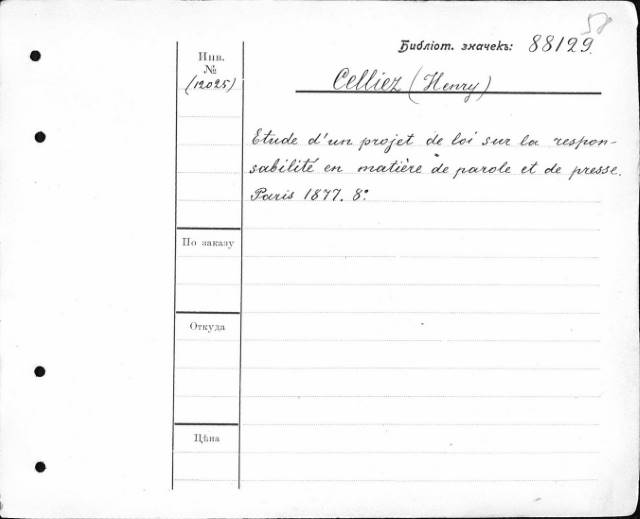 58
Библіот. значекъ: 88129.
Инв.
№
(12025)
Celliez (Henry)
Etude d'un projet de loi sur la respon-
sabilité en matière de parole et de presse.
Paris 1877. 8°.
По заказу
Откуда
Цѣна